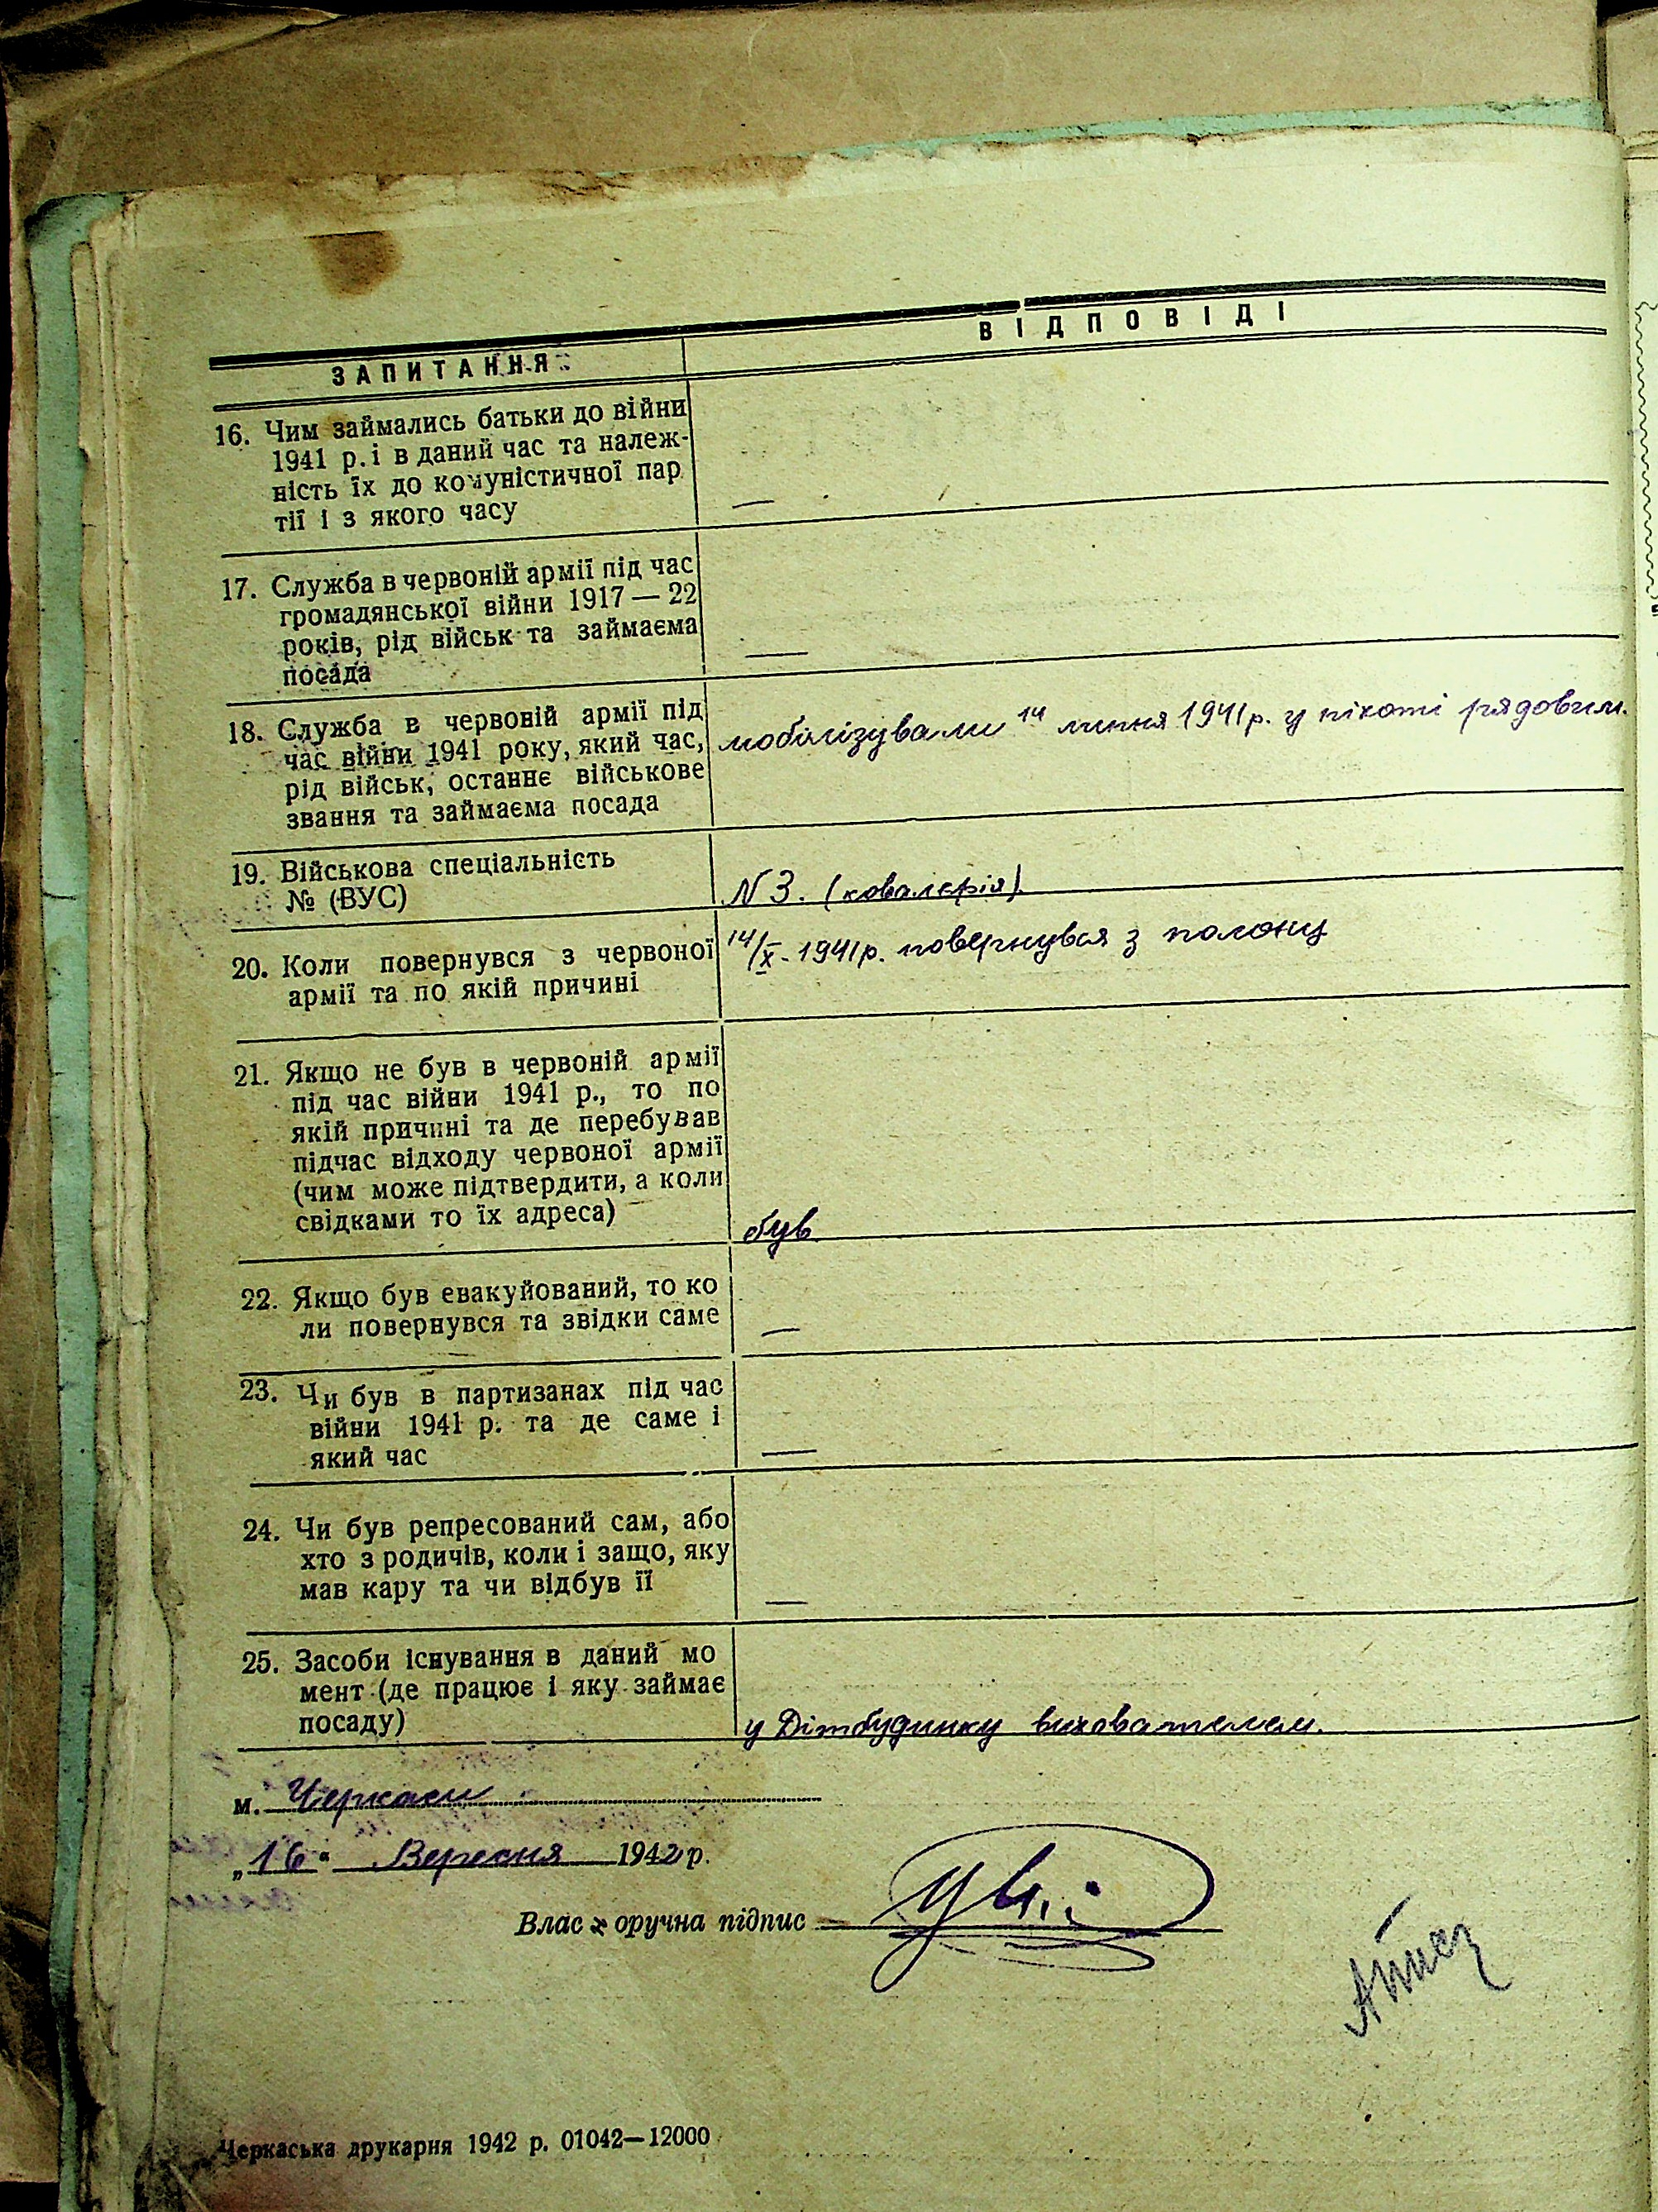 ЗАПИТАННЯ
ВІДПОВІДІ
16. Чим займались батьки до війни
1941 р. і в даний час та належ-
ність їх до комуністичної пар
тії і з якого часу
—
17. Служба в червоній армії під час
громадянської війни 1917—22
років, рід військ та займаєма
посада
—
18. Служба в червоній армії під
час війни 1941 року, який час,
рід військ, останнє військове
звання та займаєма посада
мобілізували 14 липня 1941 р. у піхоті рядовим.
19. Військова спеціальність
№ (ВУС)
N 3. (ковалерія)
20. Коли повернувся з червоної
армії та по якій причині
14/X - 1941 р. повернувся з полону
21. Якщо не був в червоній армії
під час війни 1941 р., то по
якій причині та де перебував
підчас відходу червоної армії
(чим може підтвердити, а коли
свідками то їх адреса)
був
22. Якщо був евакуйований, то ко
ли повернувся та звідки саме
—
23. Чи був в партизанах під час
війни 1941 р. та де саме і
який час
—
24. Чи був репресований сам, або
хто з родичів, коли і защо, яку
мав кару та чи відбув її
—
25. Засоби існування в даний мо
мент (де працює і яку займає
посаду)
у Дітбудинку вихователем.
м. Черкаси
„16" Вересня 1942 р.
Власноручна підпис
Черкаська друкарня 1942 р. 01042—12000